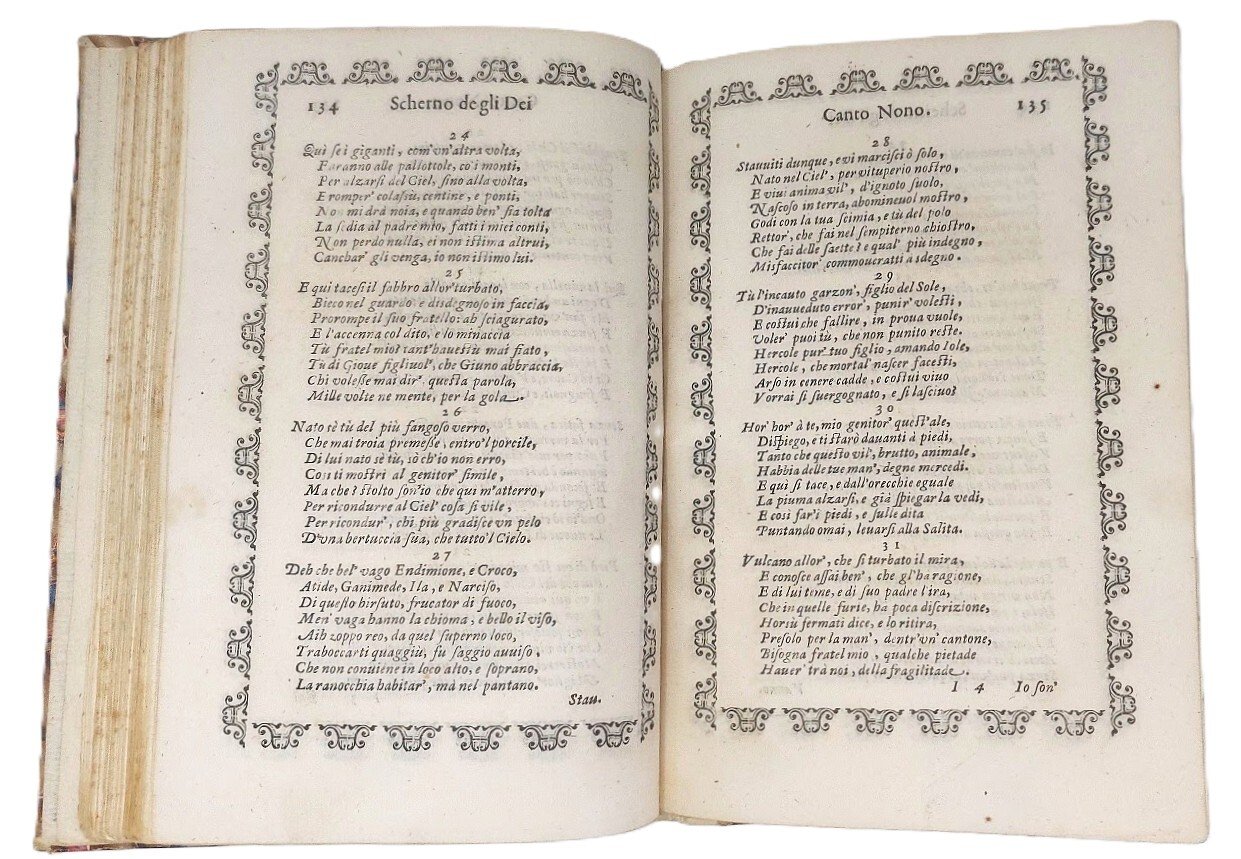 134 Scherno degli Dei
24
Quì se i giganti, com'vn'altra volta,
Faranno alle pallottole, co i monti,
Per alzarsi del Ciel, sino alla volta,
E romper' colassù, centine, e ponti,
Non mi drà noia, e quando ben' sia tolta
La sedia al padre mio, fatti i miei conti,
Non perdo nulla, ei non istima altrui,
Canchar' gli venga, io non istimo lui.
25
E qui tacesi il fabbro allor' turbato,
Bieco nel guardo e disdegnoso in faccia,
Prorompe il suo fratello: ah sciagurato,
E l'accenna col dito, e lo minaccia
Tù fratel mio? tant'hauestù mai fiato,
Tu di Gioue figliuol', che Giuno abbraccia,
Chi volesse mai dir' questa parola,
Mille volte ne mente, per la gola.
26
Nato sè tù del più fangoso verro,
Che mai troia premesse, entro'l porcile,
Di lui nato sè tù, sò ch'io non erro,
Cosi ti mostri al genitor' simile,
Ma che? stolto son'io che qui m'atterro,
Per ricondurre al Ciel' cosa si vile,
Per ricondur', chi più gradisce vn pelo
D'vna bertuccia sua, che tutto'l Cielo.
27
Deh che bel' vago Endimione, e Croco,
Atide, Ganimede, Ila, e Narciso,
Di questo hirsuto, frucator di fuoco,
Men' vaga hanno la chioma, e bello il viso,
Aih zoppo reo, da quel superno loco,
Traboccarti quaggiù, fu saggio auuiso,
Che non conuiene in loco alto, e soprano,
La ranocchia habitar', mà nel pantano.
Stau.
Canto Nono. 135
28
Stauuiti dunque, e vi marcisci ò solo,
Nato nel Ciel', per vituperio nostro,
E viui anima vil', d'ignoto suolo,
Nascoso in terra, abomineuol mostro,
Godi con la tua scimia, e tù del polo
Rettor', che fai nel sempiterno chiostro,
Che fai delle saette? e qual' più indegno,
Misfaccitor' commoueratti a sdegno.
29
Tù l'incauto garzon', figlio del Sole,
D'inauueduto error', punir' volesti,
E costui che fallire, in proua vuole,
Voler' puoi tù, che non punito reste.
Hercole pur' tuo figlio, amando Iole,
Hercole, che mortal' nascer facesti,
Arso in cenere cadde, e costui viuo
Vorrai si suergognato, e si lasciuo?
30
Hor' hor' à te, mio genitor' quest'ale,
Dispiego, e ti starò dauanti à piedi,
Tanto che questo vil', brutto, animale,
Habbia delle tue man', degne mercedi.
E qui si tace, e dall'orecchie eguale
La piuma alzarsi, e già spiegar la vedi,
E così far'i piedi, e sulle dita
Puntando omai, leuarsi alla Salita.
31
Vulcano allor', che si turbato il mira,
E conosce assai ben', che gl'ha ragione,
E di lui teme, e di suo padre l'ira,
Che in quelle furie, ha poca discrizione,
Horsù fermati dice, e lo ritira,
Presolo per la man', dentr'vn' cantone,
Bisogna fratel mio, qualche pietade
Hauer' trà noi, della fragilitade.
I 4 Io son'